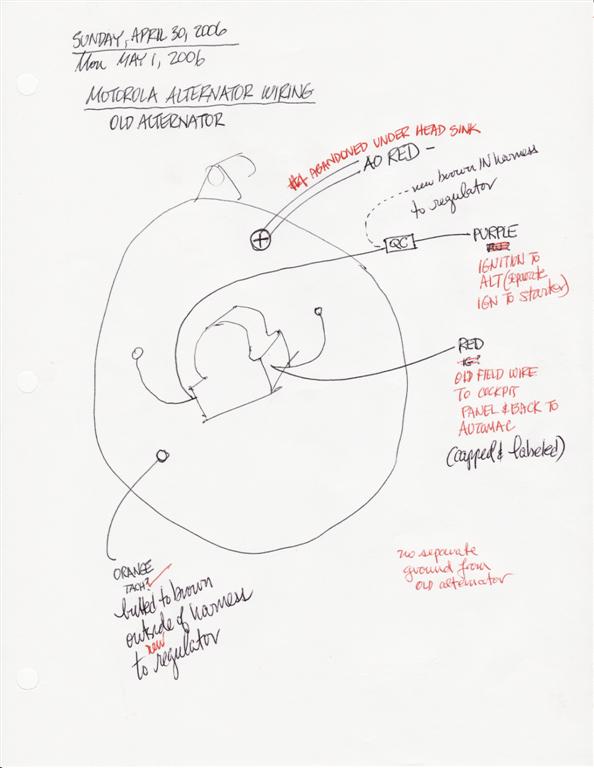 SUNDAY, APRIL 30, 2006
Mon MAY 1, 2006
MOTOROLA ALTERNATOR WIRING
OLD ALTERNATOR
#4 ABANDONED UNDER HEAD SINK
AO RED -
new brown IN harness
to regulator
QC
PURPLE
IGNITION TO
ALT (separate
IGN to starter)
RED
OLD FIELD WIRE
TO COCKPIT
PANEL & BACK TO
AUTOMAC
(capped & labeled)
no separate
ground from
old alternator
ORANGE
TACH?
butted to brown
outside of harness
new
to regulator